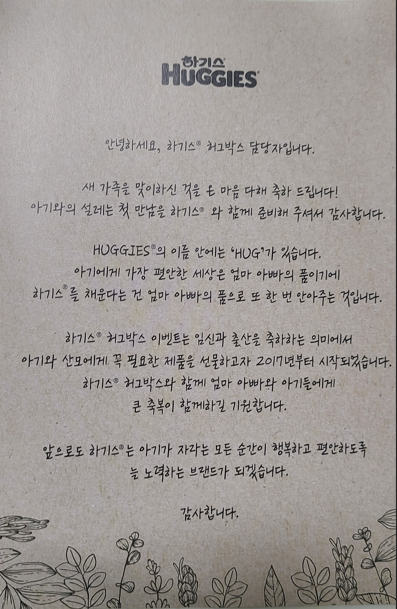 하기스
HUGGIES®
안녕하세요, 하기스® 허그박스 담당자입니다.
새 가족을 맞이하신 것을 온 마음 다해 축하 드립니다!
아기와의 설레는 첫 만남을 하기스® 와 함께 준비해 주셔서 감사합니다.
HUGGIES®의 이름 안에는 'HUG'가 있습니다.
아기에게 가장 편안한 세상은 엄마 아빠의 품이기에
하기스®를 채운다는 건 엄마 아빠의 품으로 또 한 번 안아주는 것입니다.
하기스® 허그박스 이벤트는 임신과 출산을 축하하는 의미에서
아기와 산모에게 꼭 필요한 제품을 선물하고자 2017년부터 시작되었습니다.
하기스® 허그박스와 함께 엄마 아빠와 아기들에게
큰 축복이 함께하길 기원합니다.
앞으로도 하기스®는 아기가 자라는 모든 순간이 행복하고 편안하도록
늘 노력하는 브랜드가 되겠습니다.
감사합니다.